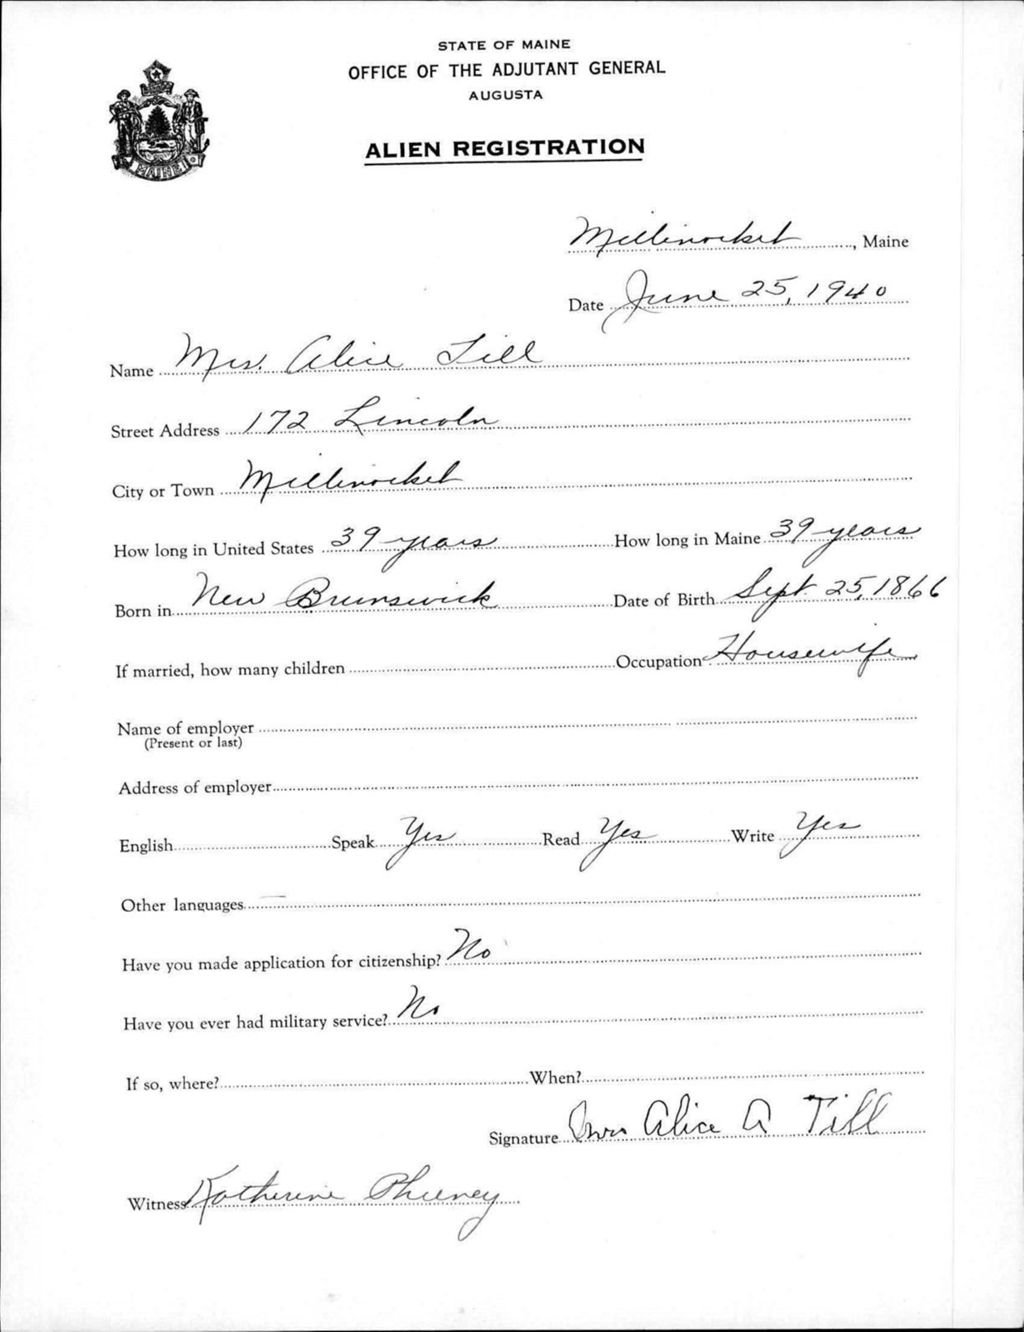 STATE OF MAINE
OFFICE OF THE ADJUTANT GENERAL
AUGUSTA
ALIEN REGISTRATION
MAINE
Millinocket, Maine
Date June 25, 1940
Name Mrs. Alice Till
Street Address 172 Lincoln
City or Town Millinocket
How long in United States 39 years How long in Maine 39 years
Born in New Brunswick Date of Birth Sept. 25, 1866
If married, how many children Occupation Housewife
Name of employer
(Present or last)
Address of employer
English Speak Yes Read Yes Write Yes
Other languages —
Have you made application for citizenship? No
Have you ever had military service? No
If so, where? When?
Signature Mrs Alice A Till
Witness Katherine Phinney